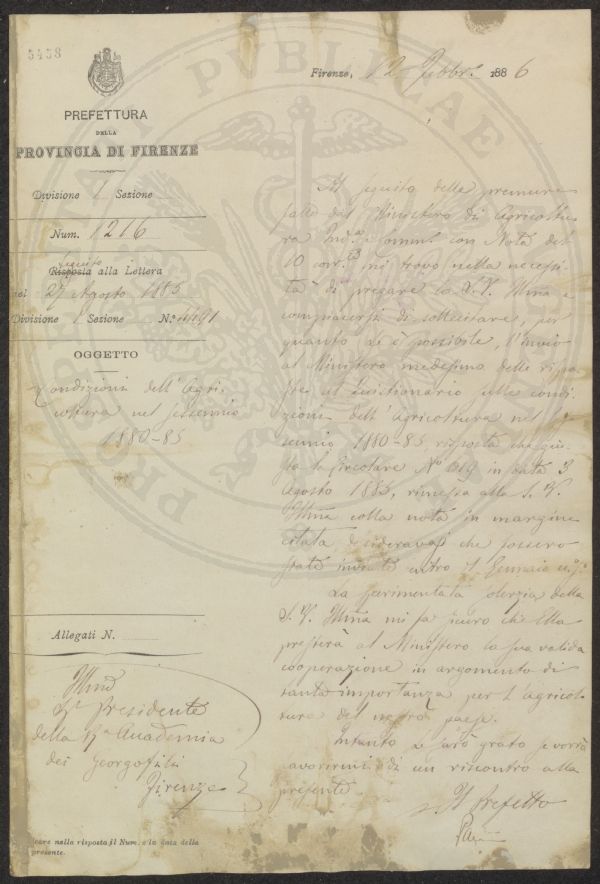 5458
PREFETTURA
DELLA
PROVINCIA DI FIRENZE
Divisione 1 Sezione
Num. 1216
seguito
Risposta alla Lettera
del 29 Agosto 1885
Divisione 1 Sezione N.º 4491
OGGETTO
Condizioni dell'Agri-
coltura nel sessennio
1880-85
Allegati N.
Illmo
Sr. Presidente
della Rª Accademia
dei Georgofili
Firenze
care nella risposta il Num. e la data della
presente.
Firenze, 12 Febbr. 1886
In seguito delle premure
fatte dal Ministero di Agricoltu-
ra Ind.ª e Comm. con Nota del
10 corr.te mi trovo nella necessi-
tà di pregare la S.V. Illma a
compiacersi di sollecitare, per
quanto Le è possibile, l'invio
al Ministero medesimo delle rispo-
ste al questionario sulle condi-
zioni dell'Agricoltura nel
sennio 1880-85 risposta che giu-
sta la Circolare Nº in data 3
Agosto 1885, rimessa alla S.V.
Illma colla nota in margine
citata desideravasi che fossero
state inviate entro il Gennaio
La sperimentata solerzia della
S.V. Illma mi fa sicuro che Ella
presterà al Ministero la sua valida
cooperazione in argomento di
tanta importanza per l'Agricol-
tura del nostro paese.
Intanto Le sarò grato se vorrà
favorirmi di un riscontro alla
presente.
Il Prefetto
PUBLICAE